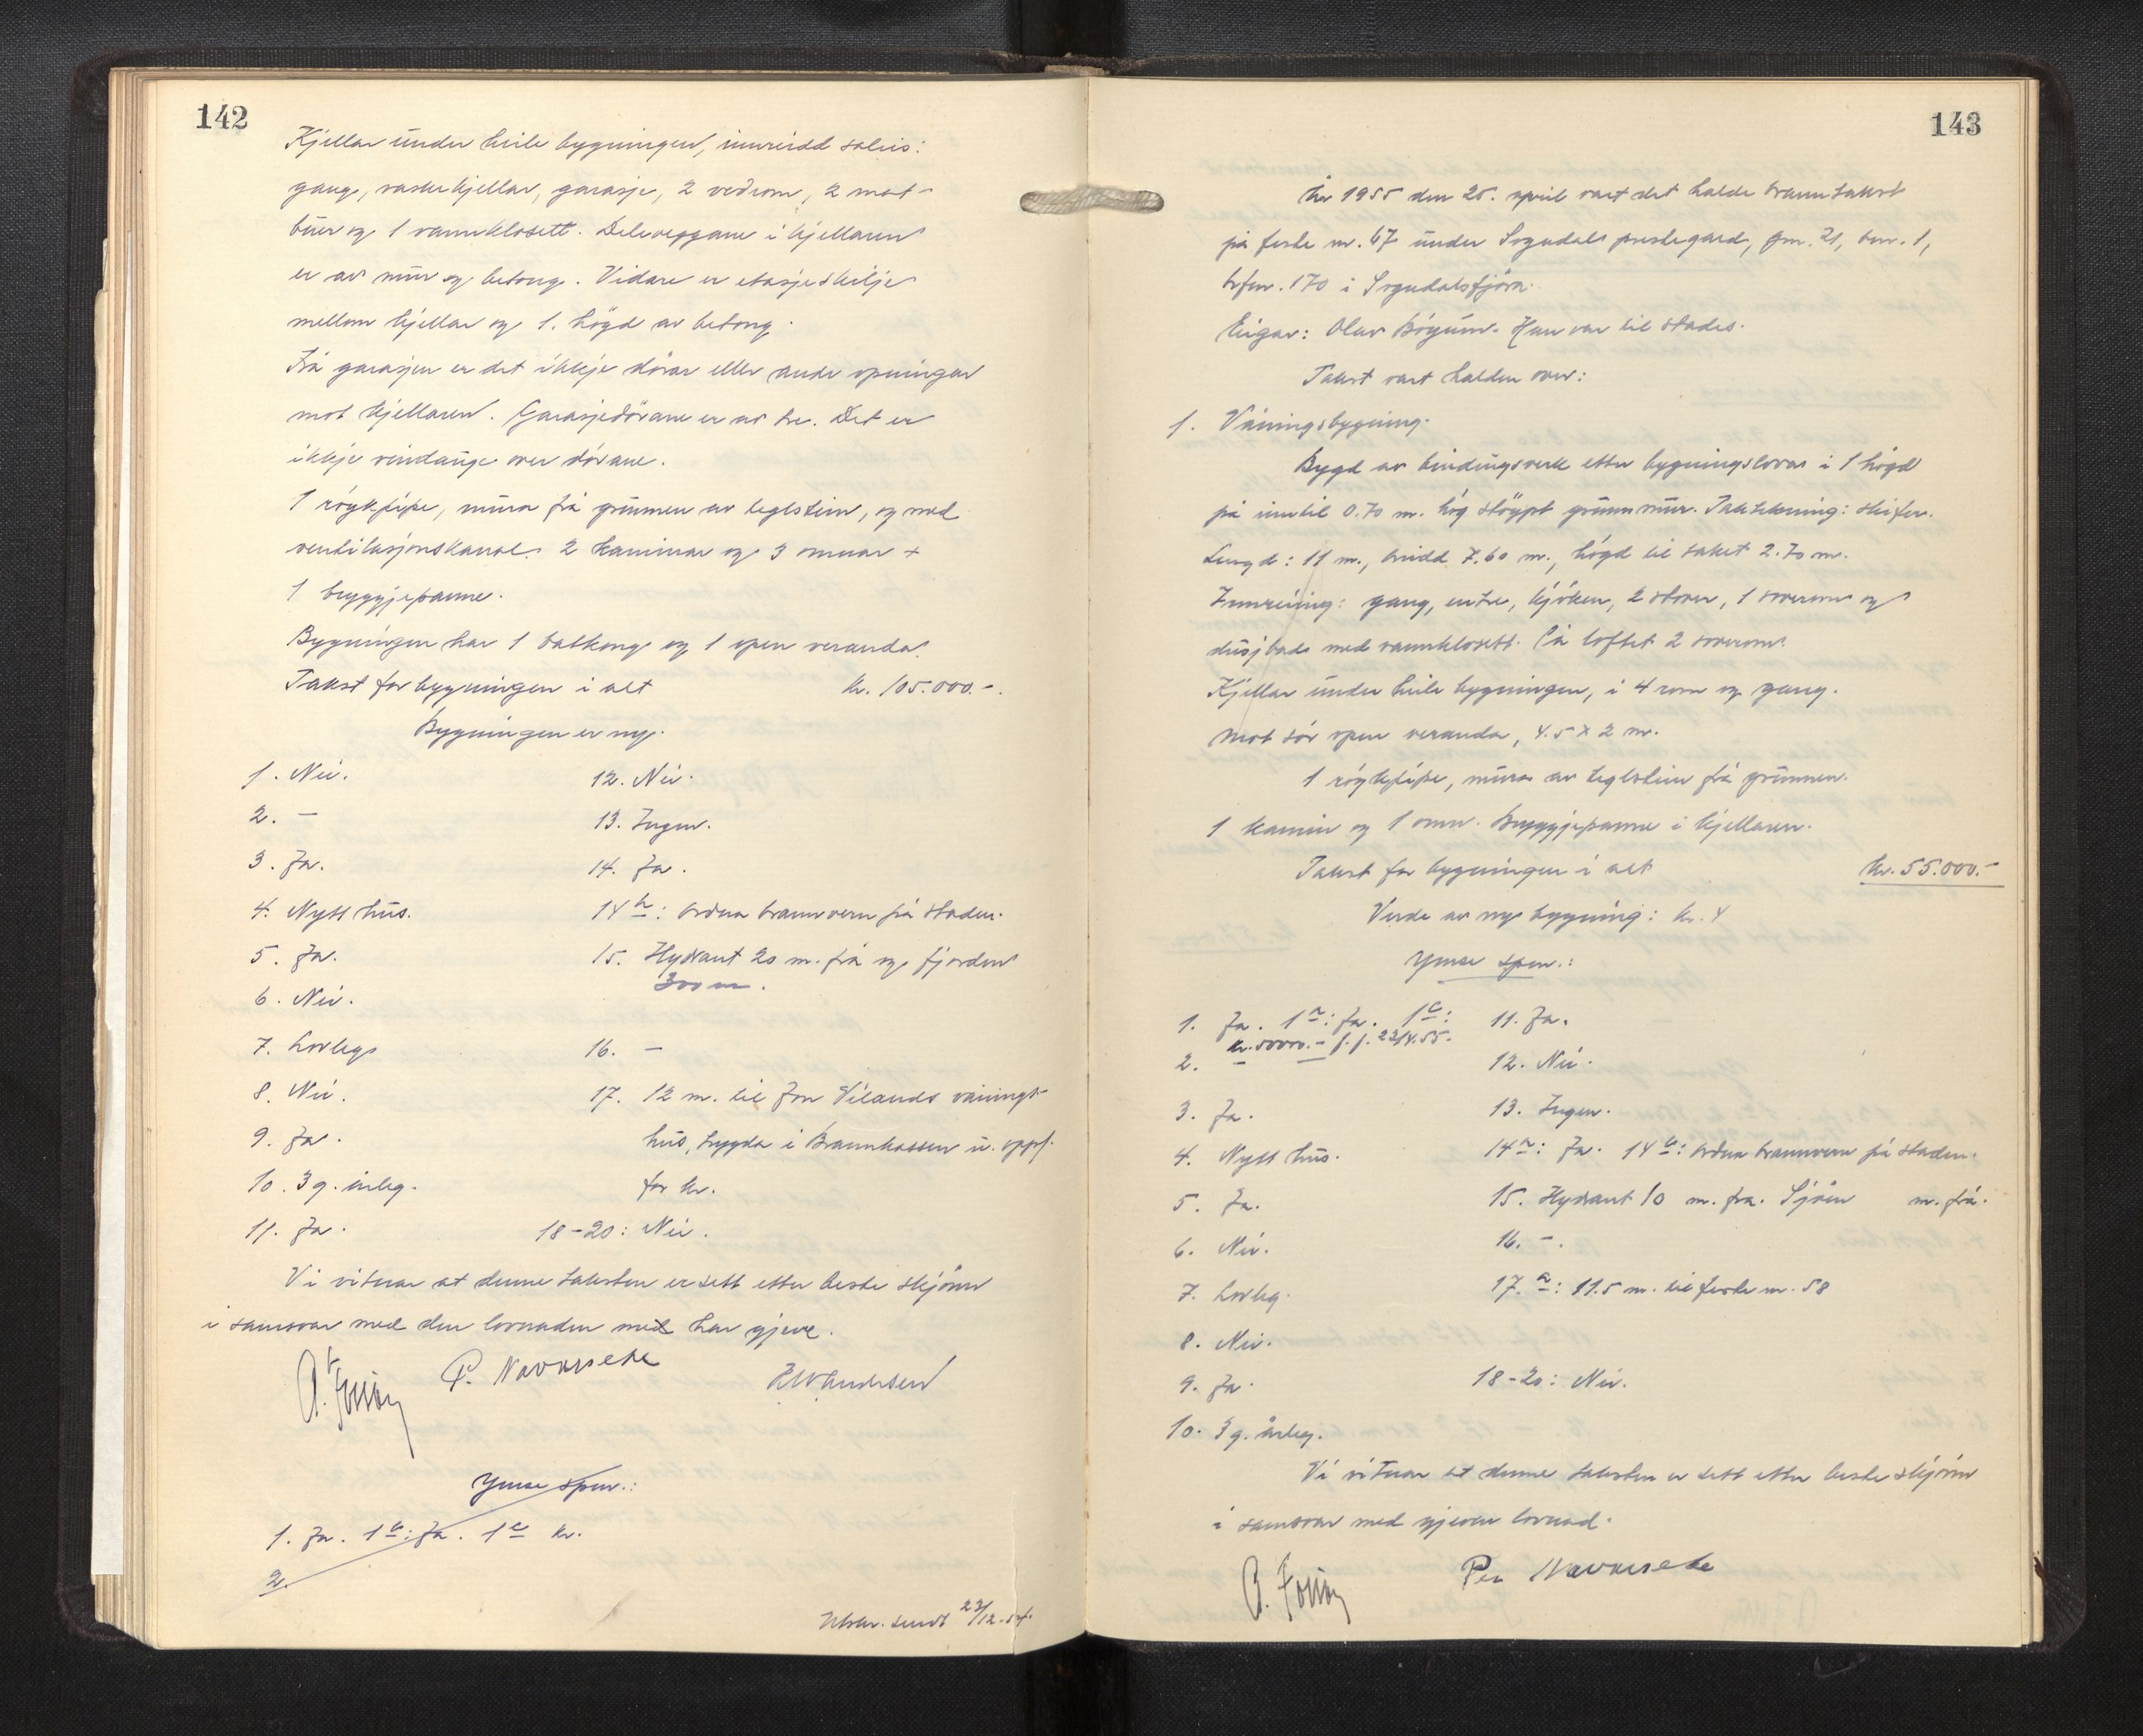 142
Kjellar under heile bygningen, innreidd soleis:
gang, vaskekjellar, garasje, 2 vedrom, 2 mat-
buer og 1 vannklosett. Deleveggane i kjellaren
er av mur og betong. Vidare er etasjeskilje
mellom kjellar og 1. högd av betong.
Frå garasjen er det ikkje dörar eller andre opningar
mot kjellaren. Garasjedörane er av tre. Det er
ikkje vindauge over dörane.
1 röykpipe, mura frå grunnen av teglstein, og med
ventilasjonskanal. 2 kaminar og 3 omnar +
1 bryggjepanne.
Bygningen har 1 balkong og 1 open veranda.
Takst for bygningen i alt kr. 105.000.-.
Bygningen er ny.
1. Nei. 12. Nei.
2. - 13. Ingen.
3. Ja. 14. Ja.
4. Nytt hus. 14 b: Ordna brannvern på staden.
5. Ja. 15. Hydrant 20 m. frå og fjorden
300 m.
6. Nei.
7. Lovleg 16. -
8. Nei. 17. 12 m. til Jon Vilands vånings-
9. Ja. hus, trygda i Brannkassen u. oppf.
10. 3 g. årleg. for kr.
11. Ja. 18-20: Nei.
Vi vitnar at denne taksten er sett etter beste skjönn
i samsvar med den lovnaden med har gjeve.
P. Navarsete
Ymse spm.:
1. Ja. 1 b: Ja. 1 c kr.
2.
Utskr. sendt 22/12-54.
143
År 1955 den 25. april vart det halde branntakst
på feste nr. 67 under Sogndals prestegard, gnr. 21, bnr. 1,
brfnr. 170 i Sogndalsfjöra.
Eigar: Olav Bögum. Han var til stades.
Takst vart halden over:
1. Våningsbygning.
Bygd av bindingsverk etter bygningslova i 1 högd
på inntil 0.70 m. hög stöypt grunnmur. Taktekning: skifer.
Lengd: 11 m., breidd 7.60 m., högd til taket 2.70 m.
Innreiing: gang, entre, kjöken, 2 stover, 1 soverom og
dusjbad med vannklosett. På loftet 2 soverom.
Kjellar under heile bygningen, i 4 rom og gang.
Mot sör open veranda, 4.5 x 2 m.
1 röykpipe, mura av teglstein frå grunnen.
1 kamin og 1 omn. Bryggjepanne i kjellaren.
Takst for bygningen i alt kr. 55.000.-
Verde av ny bygning: kr. 4
Ymse spm.:
1. Ja. 1 a: Ja. 1 c: 11. Ja.
kr. 50000.- f. f. 23/4.55.
2. - 12. Nei.
3. Ja. 13. Ingen.
4. Nytt hus. 14 a: Ja. 14 b: Ordna brannvern på staden.
5. Ja. 15. Hydrant 10 m. fra. Sjöen m. frå.
6. Nei. 16. -.
7. Lovleg. 17. a: 11.5 m. til feste nr. 58
8. Nei.
9. Ja. 18-20: Nei.
10. 3 g. årleg.
Vi vitnar at denne taksten er sett etter beste skjönn
i samsvar med gjeven lovnad.
Per Navarsete